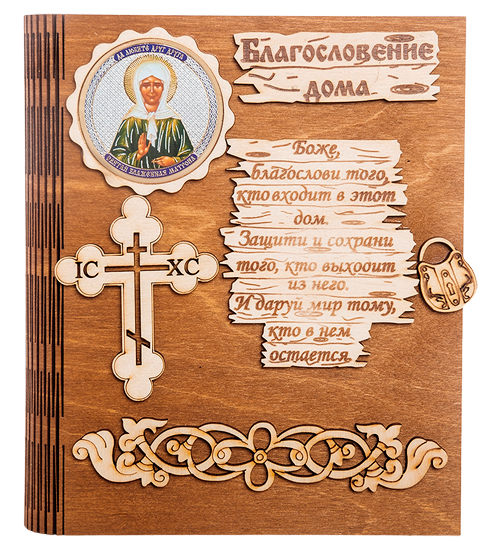 ДА ЛЮБИТЕ ДРУГ ДРУГА
СВЯТАЯ БЛАЖЕННАЯ МАТРОНА
Благословение
дома
Боже,
благослови того,
кто входит в этот
дом.
Защити и сохрани
того, кто выходит
из него.
И даруй мир тому,
кто в нем
остается.
IC XC